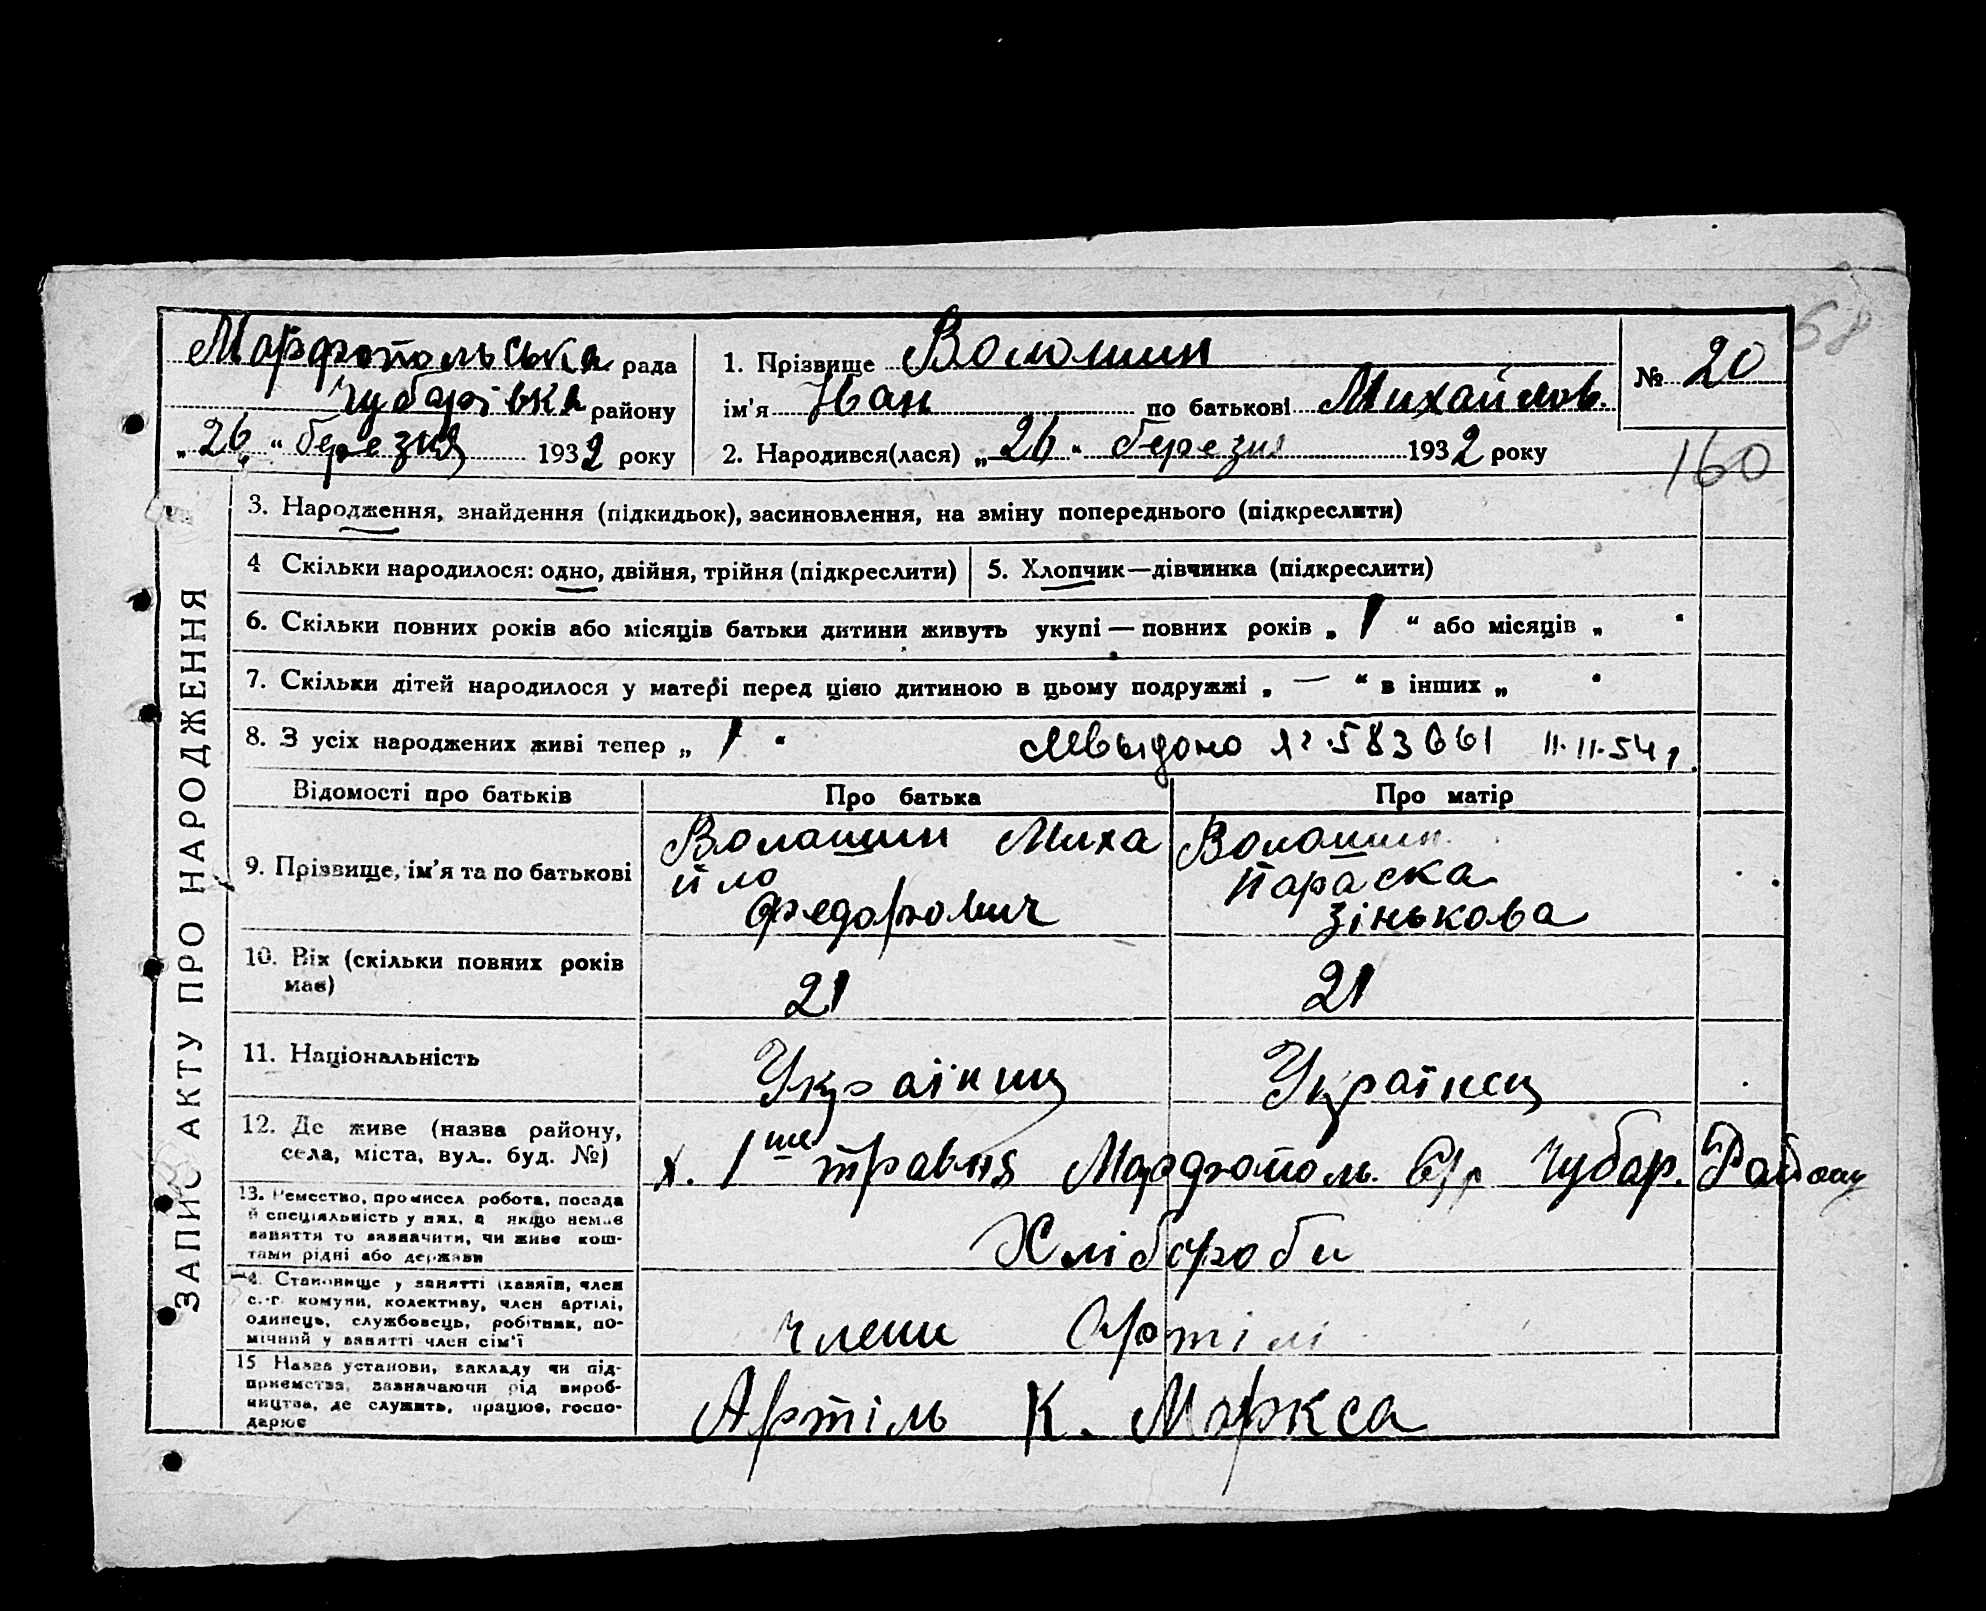 68
Марфопольська рада
Чубарівка району
„26“ березня 1932 року
1. Прізвище Волошин
ім'я Іван по батькові Михайлов.
2. Народився(лася) „26“ березня 1932 року
№ 20
160
ЗАПИС АКТУ ПРО НАРОДЖЕННЯ
3. Народження, знайдення (підкидьок), засиновлення, на зміну попереднього (підкреслити)
4 Скільки народилося: одно, двійня, трійня (підкреслити)
5. Хлопчик—дівчинка (підкреслити)
6. Скільки повних років або місяців батьки дитини живуть укупі — повних років „ 1 “ або місяців „ “
7. Скільки дітей народилося у матері перед цією дитиною в цьому подружжі „ — “ в інших „ “
8. З усіх народжених живі тепер „ 1 “
583661 11.11.54 г.
Відомості про батьків
Про батька
Про матір
9. Прізвище, ім'я та по батькові
Волошин Миха
йло
Федорович
Волошин
Параска
Зінькова
10. Вік (скільки повних років
має)
21
21
11. Національність
Українец
Українец
12. Де живе (назва району,
села, міста, вул. буд. №)
х. 1ше травня Марфополь. с/р Чубар. Району
13. Ремество, промисел робота, посада
й спеціяльність у них, а якщо немає
заняття то зазначити, чи живе кош-
тами рідні або держави
Хлібороби
14. Становище у занятті (хазяїн, член
с.-г. комуни, колективу, член артілі,
одинець, службовець, робітник, по-
мічний у занятті член сім'ї
члени Артілі
15 Назва установи, закладу чи під-
приємства, зазначаючи рід вироб-
ництва, де служить, працює, госпо-
дарює
Артіль К. Маркса